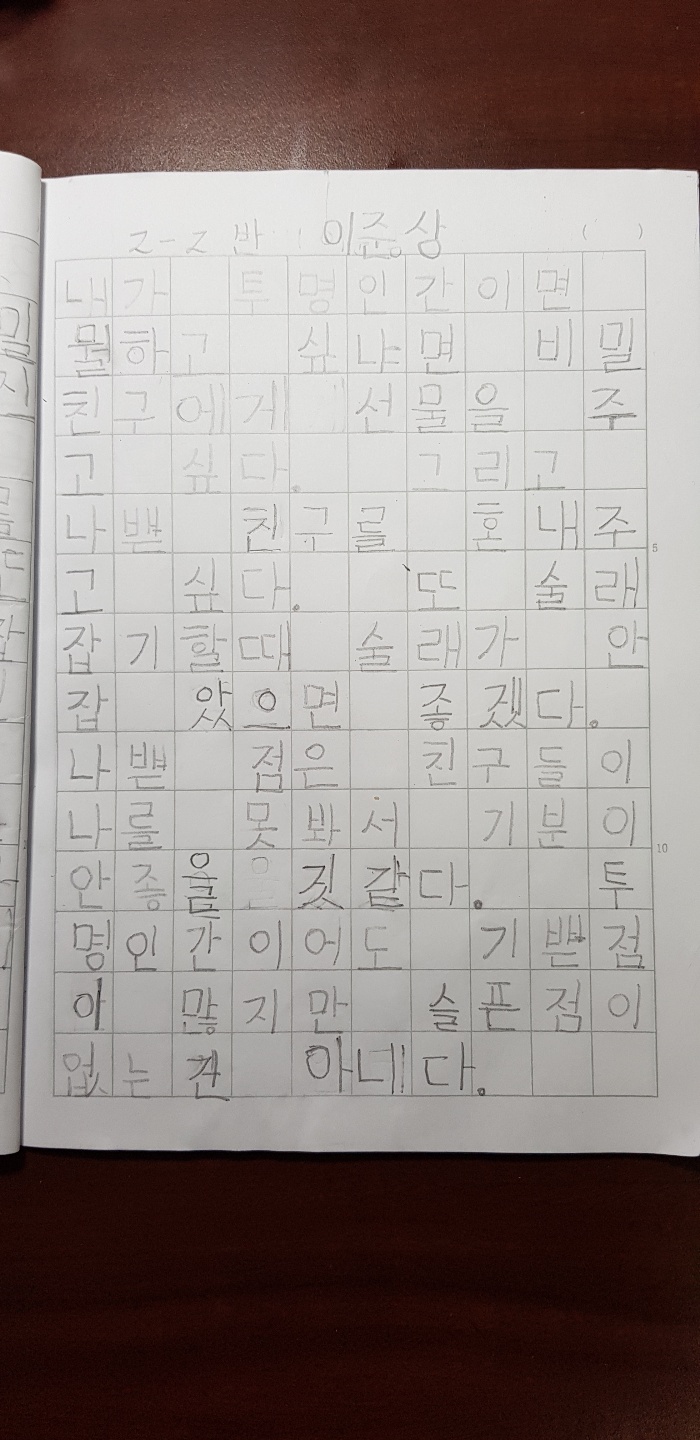 2-2 반 이준상 ( )
내가 투명인간이면
뭘하고 싶냐면 비밀
친구에게 선물을 주
고 싶다. 그리고
나쁜 친구를 혼내주
고 싶다. 또 술래
잡기할때 술래가 안
잡 았으면 좋겠다.
나쁜 점은 친구들이
나를 못봐서 기분이
안좋을 것 같다. 투
명인간이어도 기쁜점
이 많지만 슬픈점이
없는건 아네다.
5
10